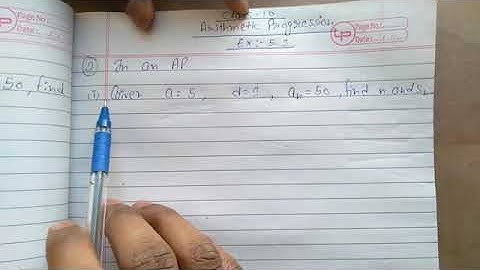 Class :- 10
Arithmetic Progression
Ex:- 5.3
Page No:
Date:
Page No:
Date:
③ In an AP
50, find
(i) Given a=5, d=3, an=50, find n and Sn